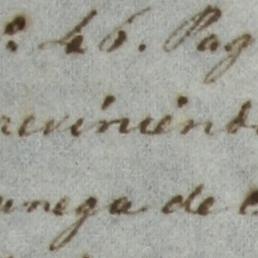 46. Pag
reviniend
unega de